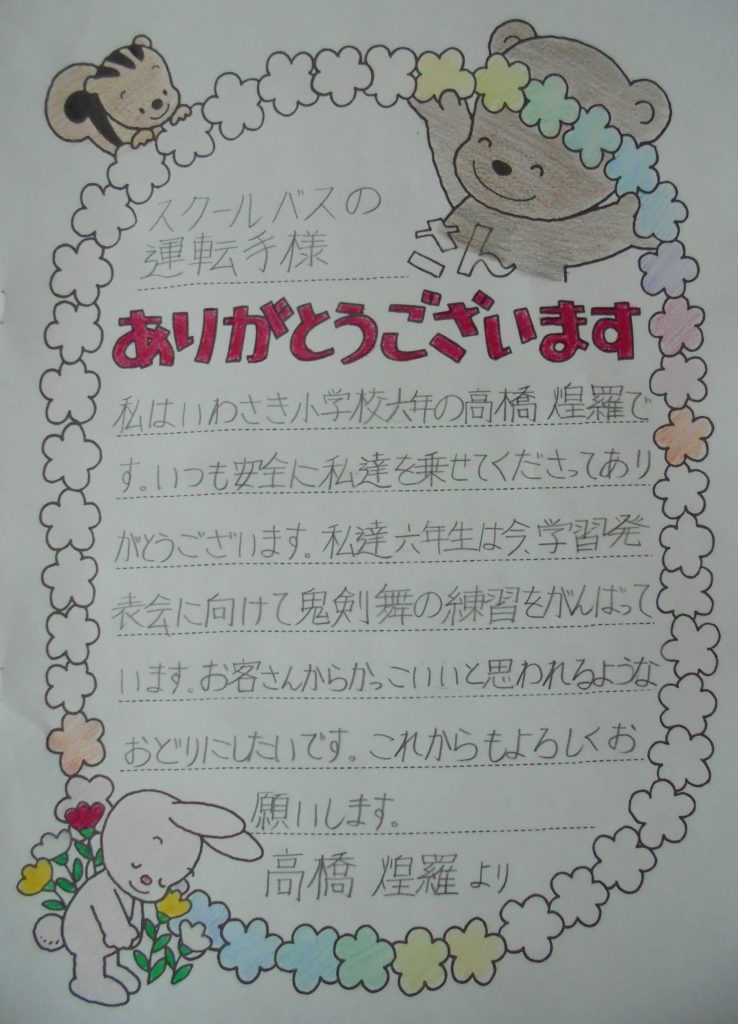 スクールバスの
運転手様 さん
ありがとうございます
私はいわさき小学校六年の高橋 煌羅で
す。いつも安全に私達を乗せてくださってあり
がとうございます。私達六年生は今、学習発
表会に向けて鬼剣舞の練習をがんばって
います。お客さんからかっこいいと思われるような
おどりにしたいです。これからもよろしくお
願いします。
高橋 煌羅より